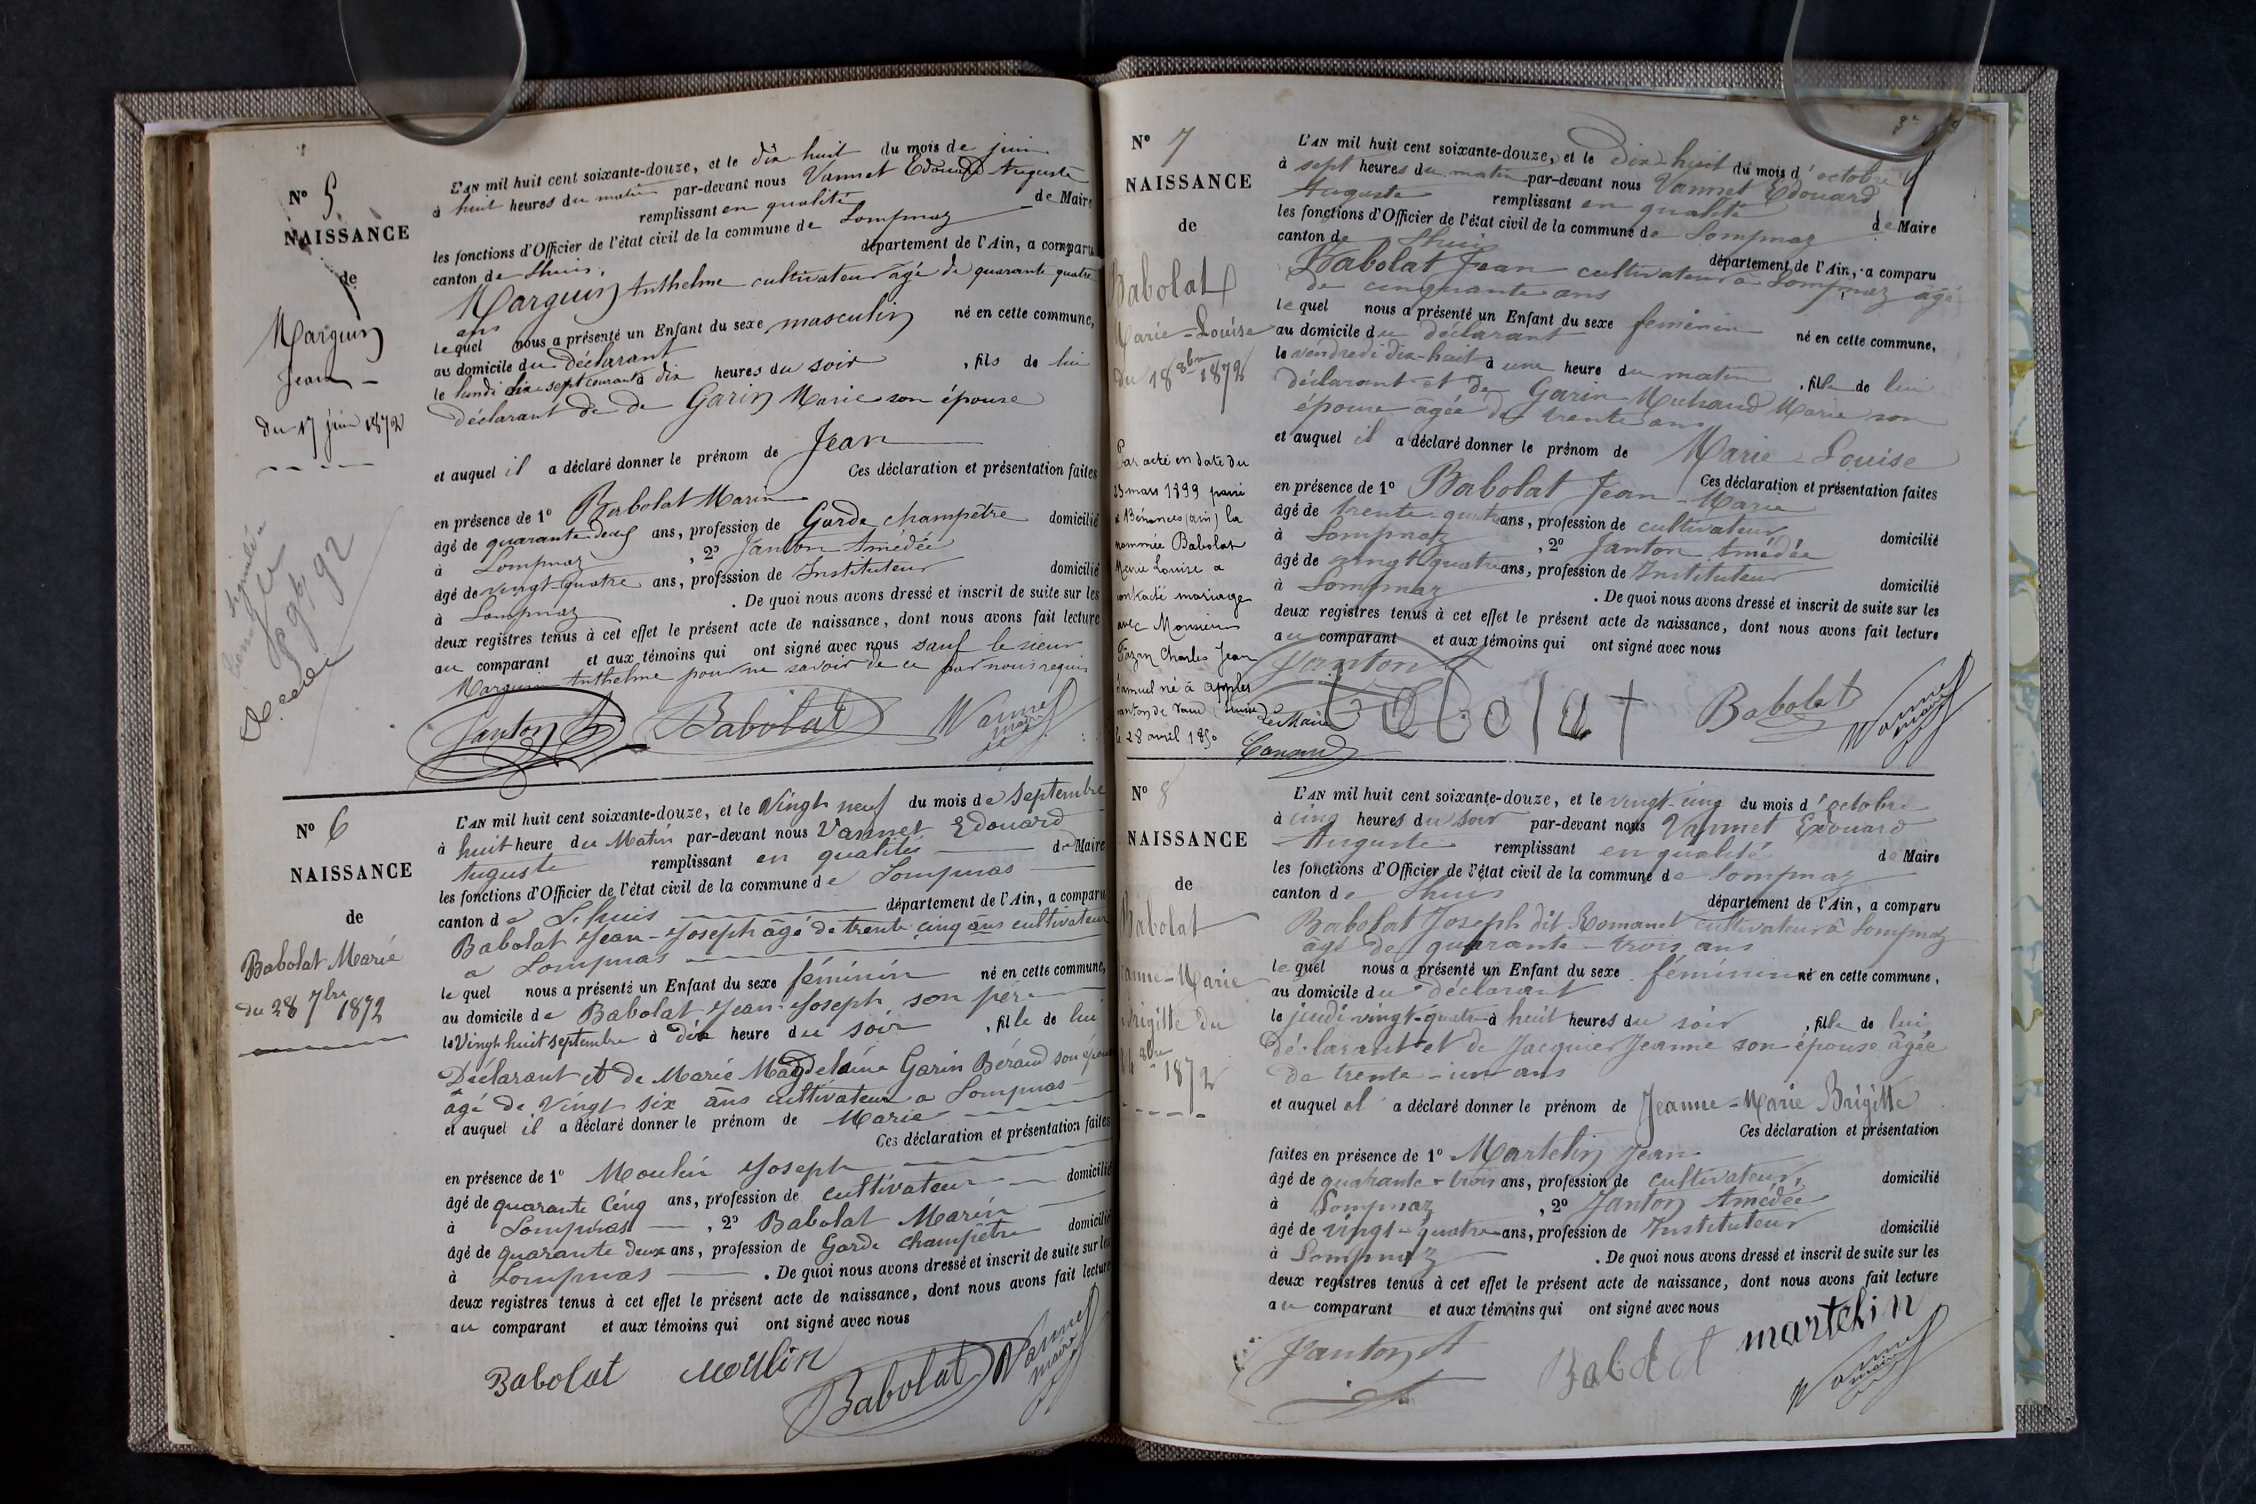 N° 5
NAISSANCE
de
Marguin
Jean
du 17 juin 1872
L'AN mil huit cent soixante-douze, et le dix huit du mois de juin
à huit heures du matin par-devant nous Vannet Edouard Auguste
remplissant en qualité de Maire
les fonctions d'Officier de l'état civil de la commune de Lompnaz
canton de Lhuis, département de l'Ain, a comparu
Marguin Anthelme cultivateur âgé de quarante quatre
ans
lequel nous a présenté un Enfant du sexe masculin né en cette commune,
au domicile du Déclarant
le lundi dix sept courant à dix heures du soir, fils de lui
déclarant de de Garin Marie son épouse
et auquel il a déclaré donner le prénom de Jean
Ces déclaration et présentation faites
en présence de 1° Babolat Marin
âgé de quarante deux ans, profession de Garde champêtre domicilié
à Lompnaz, 2° Janton Amédée
âgé de vingt-quatre ans, profession de Instituteur domicilié
à Lompnaz. De quoi nous avons dressé et inscrit de suite sur les
deux registres tenus à cet effet le présent acte de naissance, dont nous avons fait lecture
au comparant et aux témoins qui ont signé avec nous sauf le sieur
Marguin Anthelme pour ne savoir de ce par nous requis
Janton A Babolat Vannet
maire
N° 6
NAISSANCE
de
Babolat Marie
du 28 7bre 1872
L'AN mil huit cent soixante-douze, et le Vingt neuf du mois de Septembre
à huit heure du Matin par-devant nous Vannet Edouard
Auguste remplissant en qualités de Maire
les fonctions d'Officier de l'état civil de la commune de Lompnas
canton de Lhuis département de l'Ain, a comparu
Babolat Jean-Joseph âgé de trente cinq ans cultivateur
a Lompnas
le quel nous a présenté un Enfant du sexe féminin né en cette commune,
au domicile de Babolat Jean-Joseph son père
le Vingt huit septembre à dix heure du soir, fille de lui
Déclarant et de Marie Magdelaine Garin Béraud son épouse
âgé de Vingt six ans cultivateur a Lompnas
et auquel il a déclaré donner le prénom de Marie
Ces déclaration et présentation faites
en présence de 1° Moulin Joseph
âgé de quarante Cinq ans, profession de cultivateur domicilié
à Lompnas, 2° Babolat Marin
âgé de quarante deux ans, profession de Garde champêtre domicilié
à Lompnas. De quoi nous avons dressé et inscrit de suite sur les
deux registres tenus à cet effet le présent acte de naissance, dont nous avons fait lecture
au comparant et aux témoins qui ont signé avec nous
Babolat Moulin Babolat Vannet
maire
N° 7
NAISSANCE
de
Babolat
Marie-Louise
du 18 8bre 1872
Par acte en date du
23 mars 1899 passé
à Bénonces (ain) la
nommée Babolat
Marie Louise a
contracté mariage
avec Monsieur
Charles Jean
Samuel né à Apples
canton de Vaud (Suisse)
le 28 avril 1850
Le Maire
L'AN mil huit cent soixante-douze, et le Dix-huit du mois d'octobre
à sept heures du matin par-devant nous Vannet Edouard
Auguste remplissant en qualité de Maire
les fonctions d'Officier de l'état civil de la commune de Lompnaz
canton de Lhuis département de l'Ain, a comparu
Babolat Jean cultivateur à Lompnaz âgé
de cinquante ans
le quel nous a présenté un Enfant du sexe féminin né en cette commune,
au domicile du déclarant
le vendredi dix-huit à une heure du matin, fille de lui
déclarant et de Garin-Michaud Marie son
épouse âgée de trente ans
et auquel il a déclaré donner le prénom de Marie-Louise
Ces déclaration et présentation faites
en présence de 1° Babolat Jean-Marie
âgé de trente-quatre ans, profession de cultivateur domicilié
à Lompnaz, 2° Janton Amédée
âgé de vingt-quatre ans, profession de Instituteur domicilié
à Lompnaz. De quoi nous avons dressé et inscrit de suite sur les
deux registres tenus à cet effet le présent acte de naissance, dont nous avons fait lecture
au comparant et aux témoins qui ont signé avec nous
Janton A
babolat Babolat Vannet
maire
N° 8
NAISSANCE
de
Babolat
Jeanne-Marie
Brigitte du
24 8bre 1872
L'AN mil huit cent soixante-douze, et le vingt-cinq du mois d'octobre
à cinq heures du soir par-devant nous Vannet Edouard
Auguste remplissant en qualité de Maire
les fonctions d'Officier de l'état civil de la commune de Lompnaz
canton de Lhuis département de l'Ain, a comparu
Babolat Joseph dit Romanet cultivateur à Lompnaz
âgé de quarante-trois ans
le quel nous a présenté un Enfant du sexe féminin né en cette commune,
au domicile du déclarant
le jeudi vingt-quatre à huit heures du soir, fille de lui
déclarant et de Jacquier Jeanne son épouse âgée
de trente-un ans
et auquel il a déclaré donner le prénom de Jeanne-Marie Brigitte
Ces déclaration et présentation
faites en présence de 1° Martelin Jean
âgé de quarante-trois ans, profession de cultivateur, domicilié
à Lompnaz, 2° Janton Amédée
âgé de vingt-quatre ans, profession de Instituteur domicilié
à Lompnaz. De quoi nous avons dressé et inscrit de suite sur les
deux registres tenus à cet effet le présent acte de naissance, dont nous avons fait lecture
au comparant et aux témoins qui ont signé avec nous
Janton A Babolat martelin
Vannet
maire